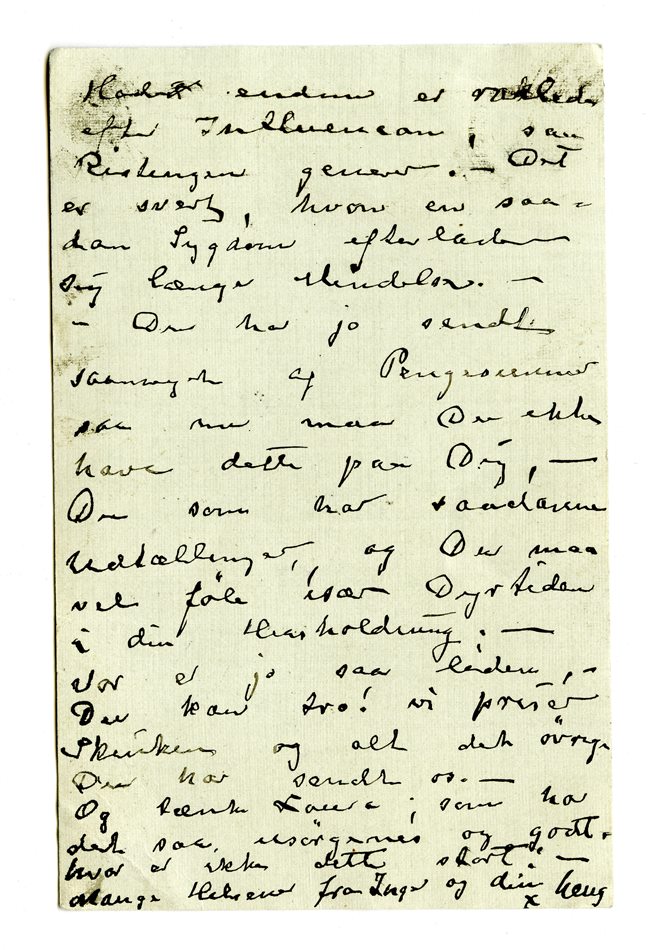 endnu er
efter Influenzaen, saa
Ristingen generer. — Det
er svert, hvor en saa=
dan Sygdom efterlader
sig længe Mindelser. —
— Du har jo sendt
saameget af
saa nu maa Du ikke
have dette paa Dig, —
Du som har saadanne
Udtællinger, og Du maa
vel føle især Dyrtiden
i din Husholdning. —
Vor er jo saa liden, —
Du kan tro! vi priser
Skinken og alt det øvrige
Du har sendt os. —
Og tænk Laura, som har
det saa og godt.
hvor er ikke dette stort. —
Mange Hilsener fra Inger og din